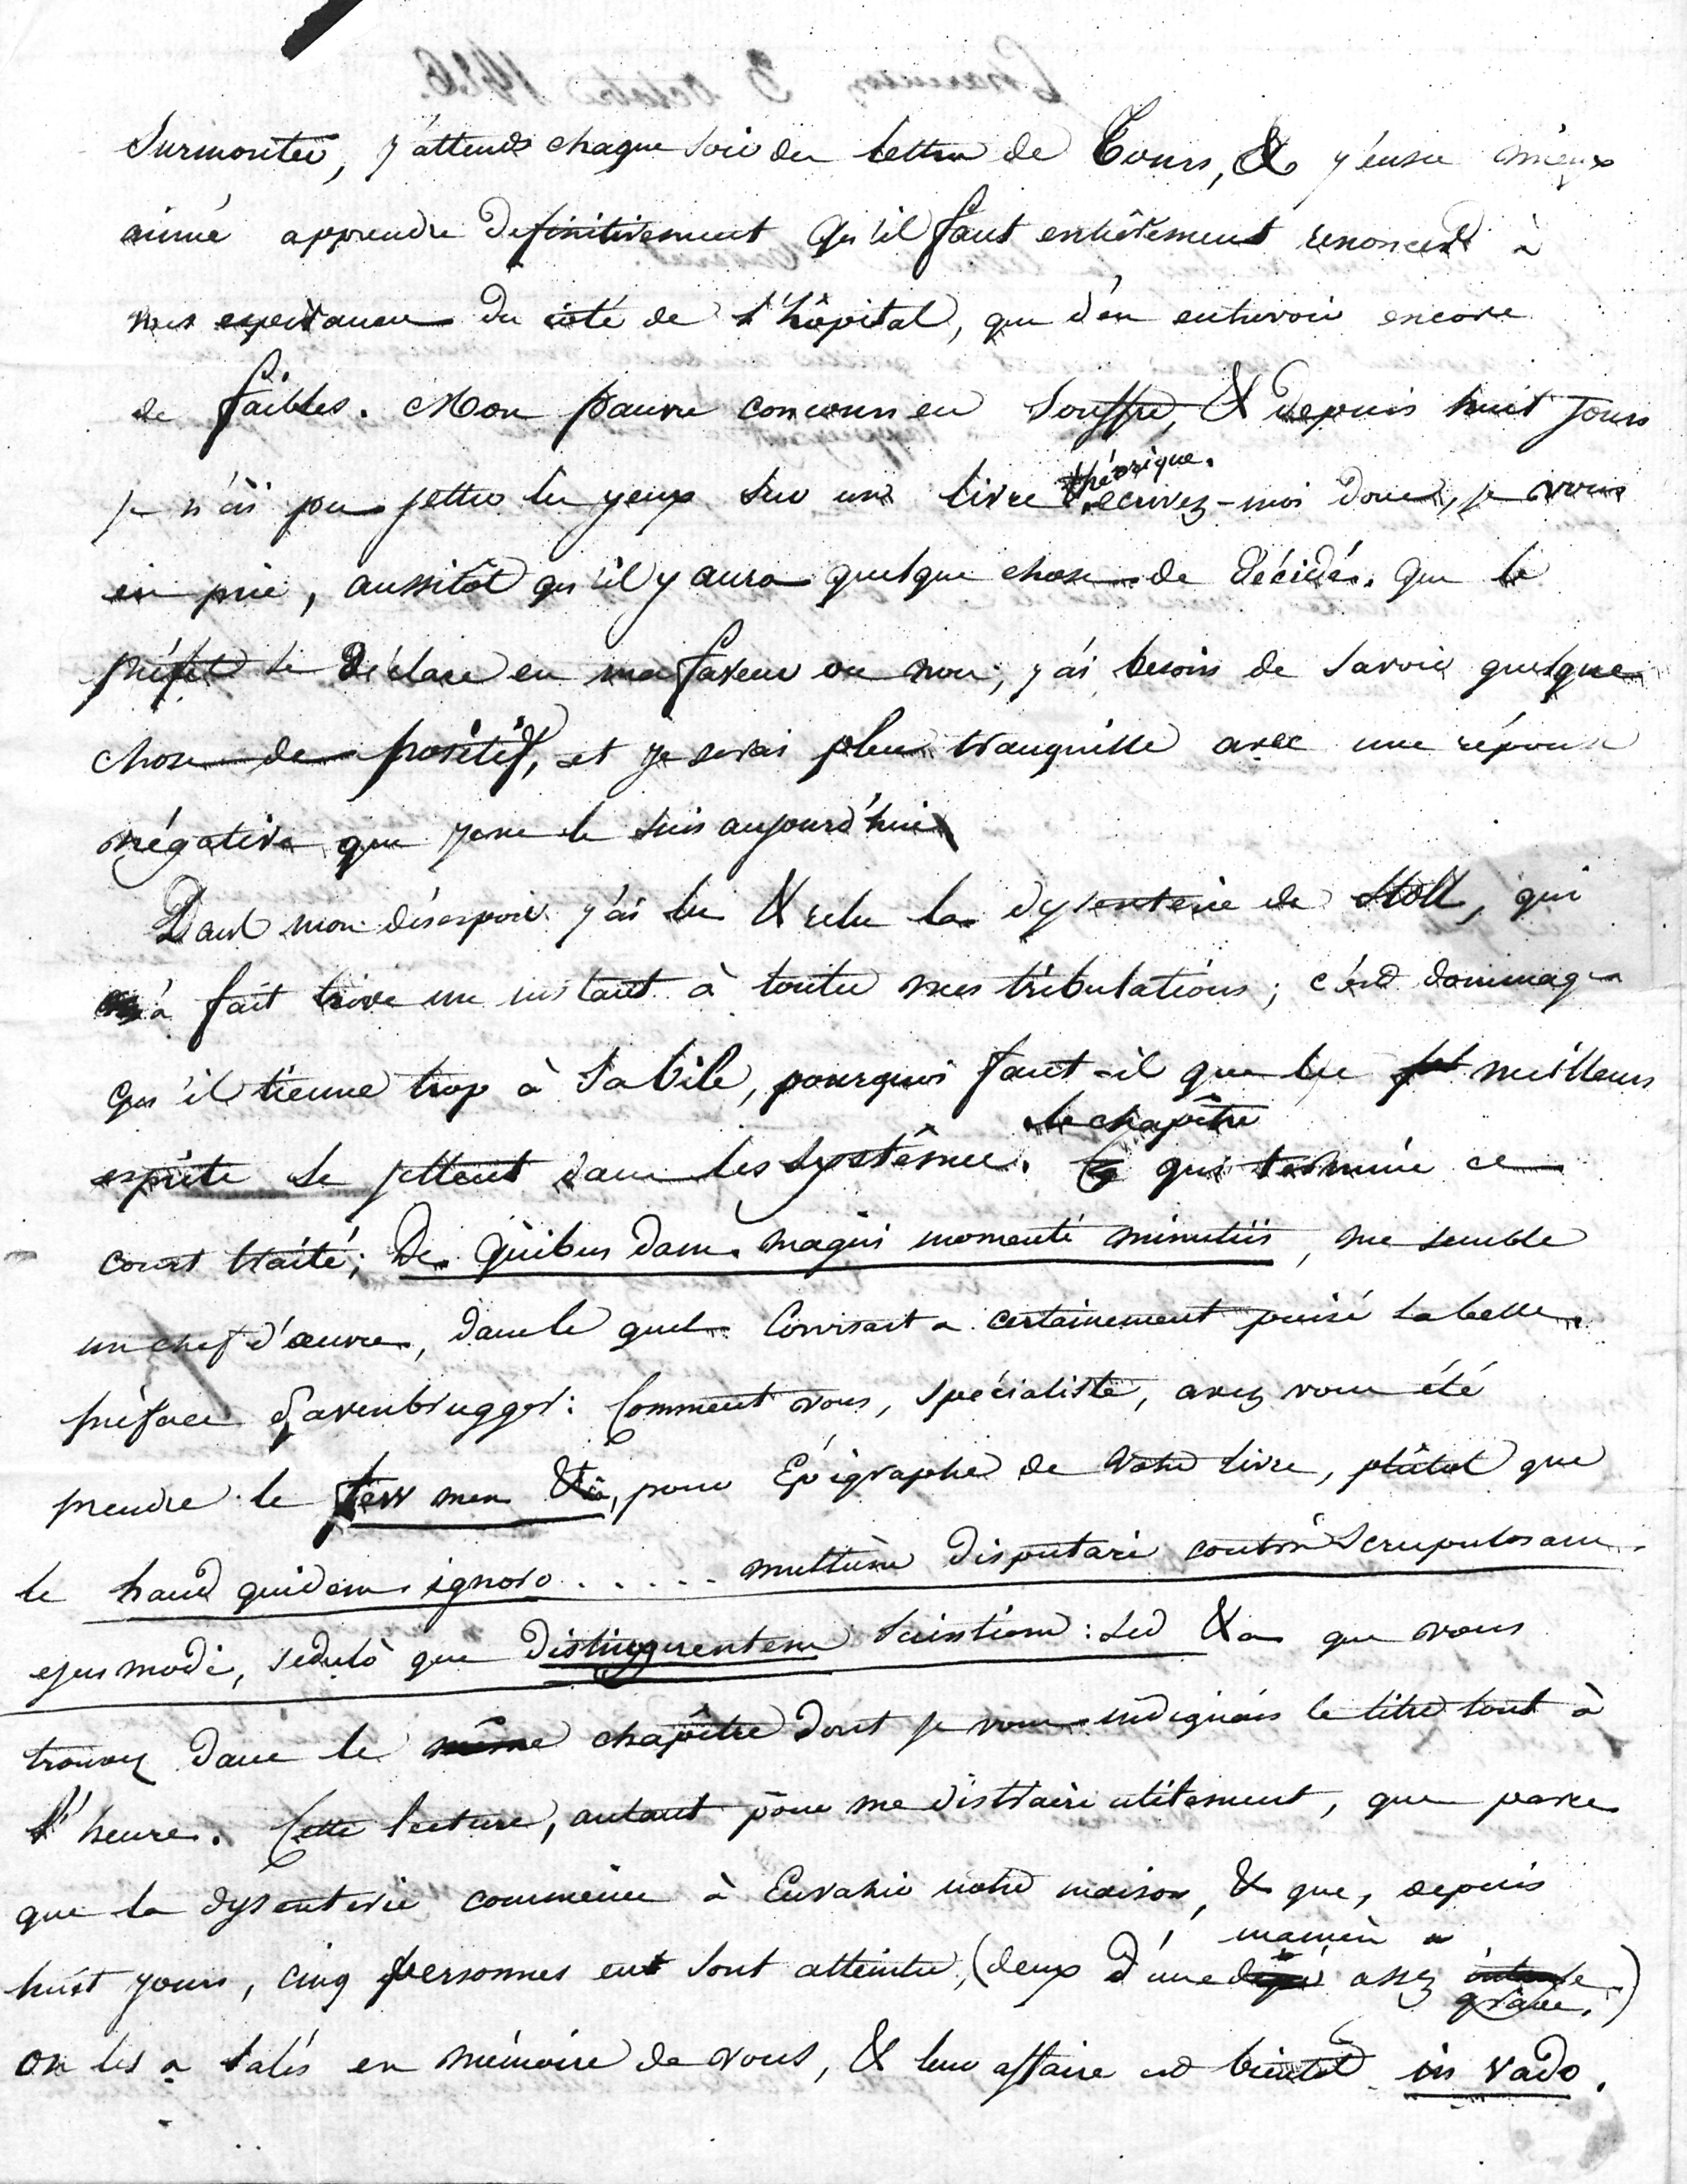 Surmonter, j'attends chaque soir des lettres de Tours, & j'eusse mieux
aimé apprendre definitivement qu'il faut entièrement renoncer à
mes esperances du côté de l'hôpital, que d'en entrevoir encore
de faibles. Mon pauvre concours en souffre, & depuis huit jours
je n'ai pu jetter les yeux sur un livre théorique. écrivez-moi donc, je vous
en prie, aussitôt qu'il y aura quelque chose de décidé. Que le
préfet se déclare en ma faveur ou non, j'ai besoin de savoir quelque
chose de positif, et je serai plus tranquille avec une réponse
négative que je ne le suis aujourd'hui
Dans mon désespoir j'ai lu & relu la dysenterie de Stoll, qui
m'a fait trève un instant à toutes mes tribulations; c'est dommage
qu'il tienne trop à sa bile, pourquoi faut-il que les meilleurs
esprits se jettent dans les systêmes. le chapître qui termine ce
court traité; De quibusdam magni momenti minutiis, me semble
un chef d'œuvre, dans le quel Corvisart a certainement puisé sa belle
préface d'avenbrugger: Comment vous, spécialiste, avez vous été
prendre le few men &a, pour Epigraphe de votre livre, plûtot que
le haud quidem ignoro ..... multùm disputari contrà scrupulosam
ejus modi, sedulò que distinguentem scientiam: sed &a que vous
trouvez dans le même chapître dont je vous indiquais le titre tout à
l'heure. Cette lecture, autant pour me distraire utilement, que parce
que la dysenterie commence à Envahir notre maison, & que, depuis
huit jours, cinq personnes en sont atteintes, (deux d'une manière assez grave.)
on les a salés en mémoire de vous, & leur affaire est bientôt in vado.